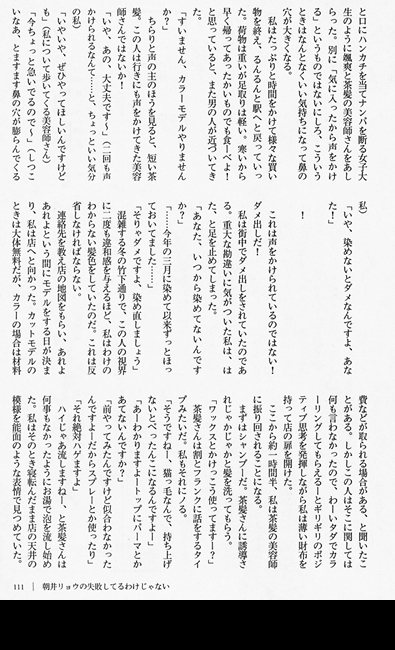 と口にハンカチを当てナンパを断る女子大
生のように颯爽と茶髪の美容師さんをあし
らった。別に「気に入ったから声をかけ
る」というものではないにしろ、こういう
ときはなんとなくいい気持ちになって鼻の
穴が大きくなる。
私はたっぷりと時間をかけて様々な買い
物を終え、るんるんと駅へと戻っていっ
た。荷物は重いが足取りは軽い。寒いから
早く帰ってあったかいものでも食べよーー!
と思っていると、また男の人が近づいてき
た。
「すいません、カラーモデルやりません
か?」
ちらりと声の主のほうを見ると、短い茶
髪。この人は行きにも声をかけてきた美容
師さんではないか!
「いや、あの、大丈夫です〜」(二回も声
かけられるなんて……と、ちょっといい気分
の私)
「いやいや、ぜひやってほしいんですけど
も」(私について歩いてくる美容師さん)
「今ちょっと急いでるので〜」(しつこ
いなあ、とますます鼻の穴が膨らんでくる
私)
「いや、染めないとダメなんですよ、あな
た!」
!
これは声をかけられているのではない!
ダメ出しだ!
私は街中でダメ出しをされていたのであ
る。重大な勘違いに気がついた私は、は
た、と足を止めてしまった。
「あなた、いつから染めてないんです
か?」
「……今年の三月に染めて以来ずっとほっ
ておいてました……」
「そりゃダメですよ、染め直しましょう」
混雑する冬の竹下通りで、この人の視界
に二度も違和感を与えるほど、私はわけの
わからない髪色をしていたのだ。これは反
省しなければならない。
連絡先を教え店の地図をもらい、あれよ
あれよという間にモデルをする日が決ま
り、私は店へと向かった。カットモデルの
ときは大体無料だが、カラーの場合は材料
費などが取られる場合がある、と聞いたこ
とがある。しかしこの人はそこに関しては
何も言わなかったので、わーいタダでカラ
ーリングしてもらえるーとギリギリのポジ
ティブ思考を発揮しながら私は薄い財布を
持って店の扉を開けた。
ここから約一時間半、私は茶髪の美容師
に振り回されることになる。
まずはシャンプーだ。茶髪さんに誘導さ
れじゃかじゃかと髪を洗ってもらう。
「ワックスとかけっこう使ってますー?」
茶髪さんは割とフランクに話をするタイ
プみたいだ。私もそれにノる。
「そうですねー、猫っ毛なんで、持ち上げ
ないとぺったんこになるんですよー」
「あーわかりますよートップにパーマとか
あてないんですか?」
「前やってみたんですけど似合わなかった
んですよーだからスプレーとか使ったり」
「それ絶対ハゲますよ」
ハイじゃあ流しますねー、と茶髪さんは
何事もなかったようにお湯で泡を流し始め
た。私はそのとき寝転んだまま店の天井の
模様を能面のような表情で見つめていた。
111 | 朝井リョウの失敗してるわけじゃない